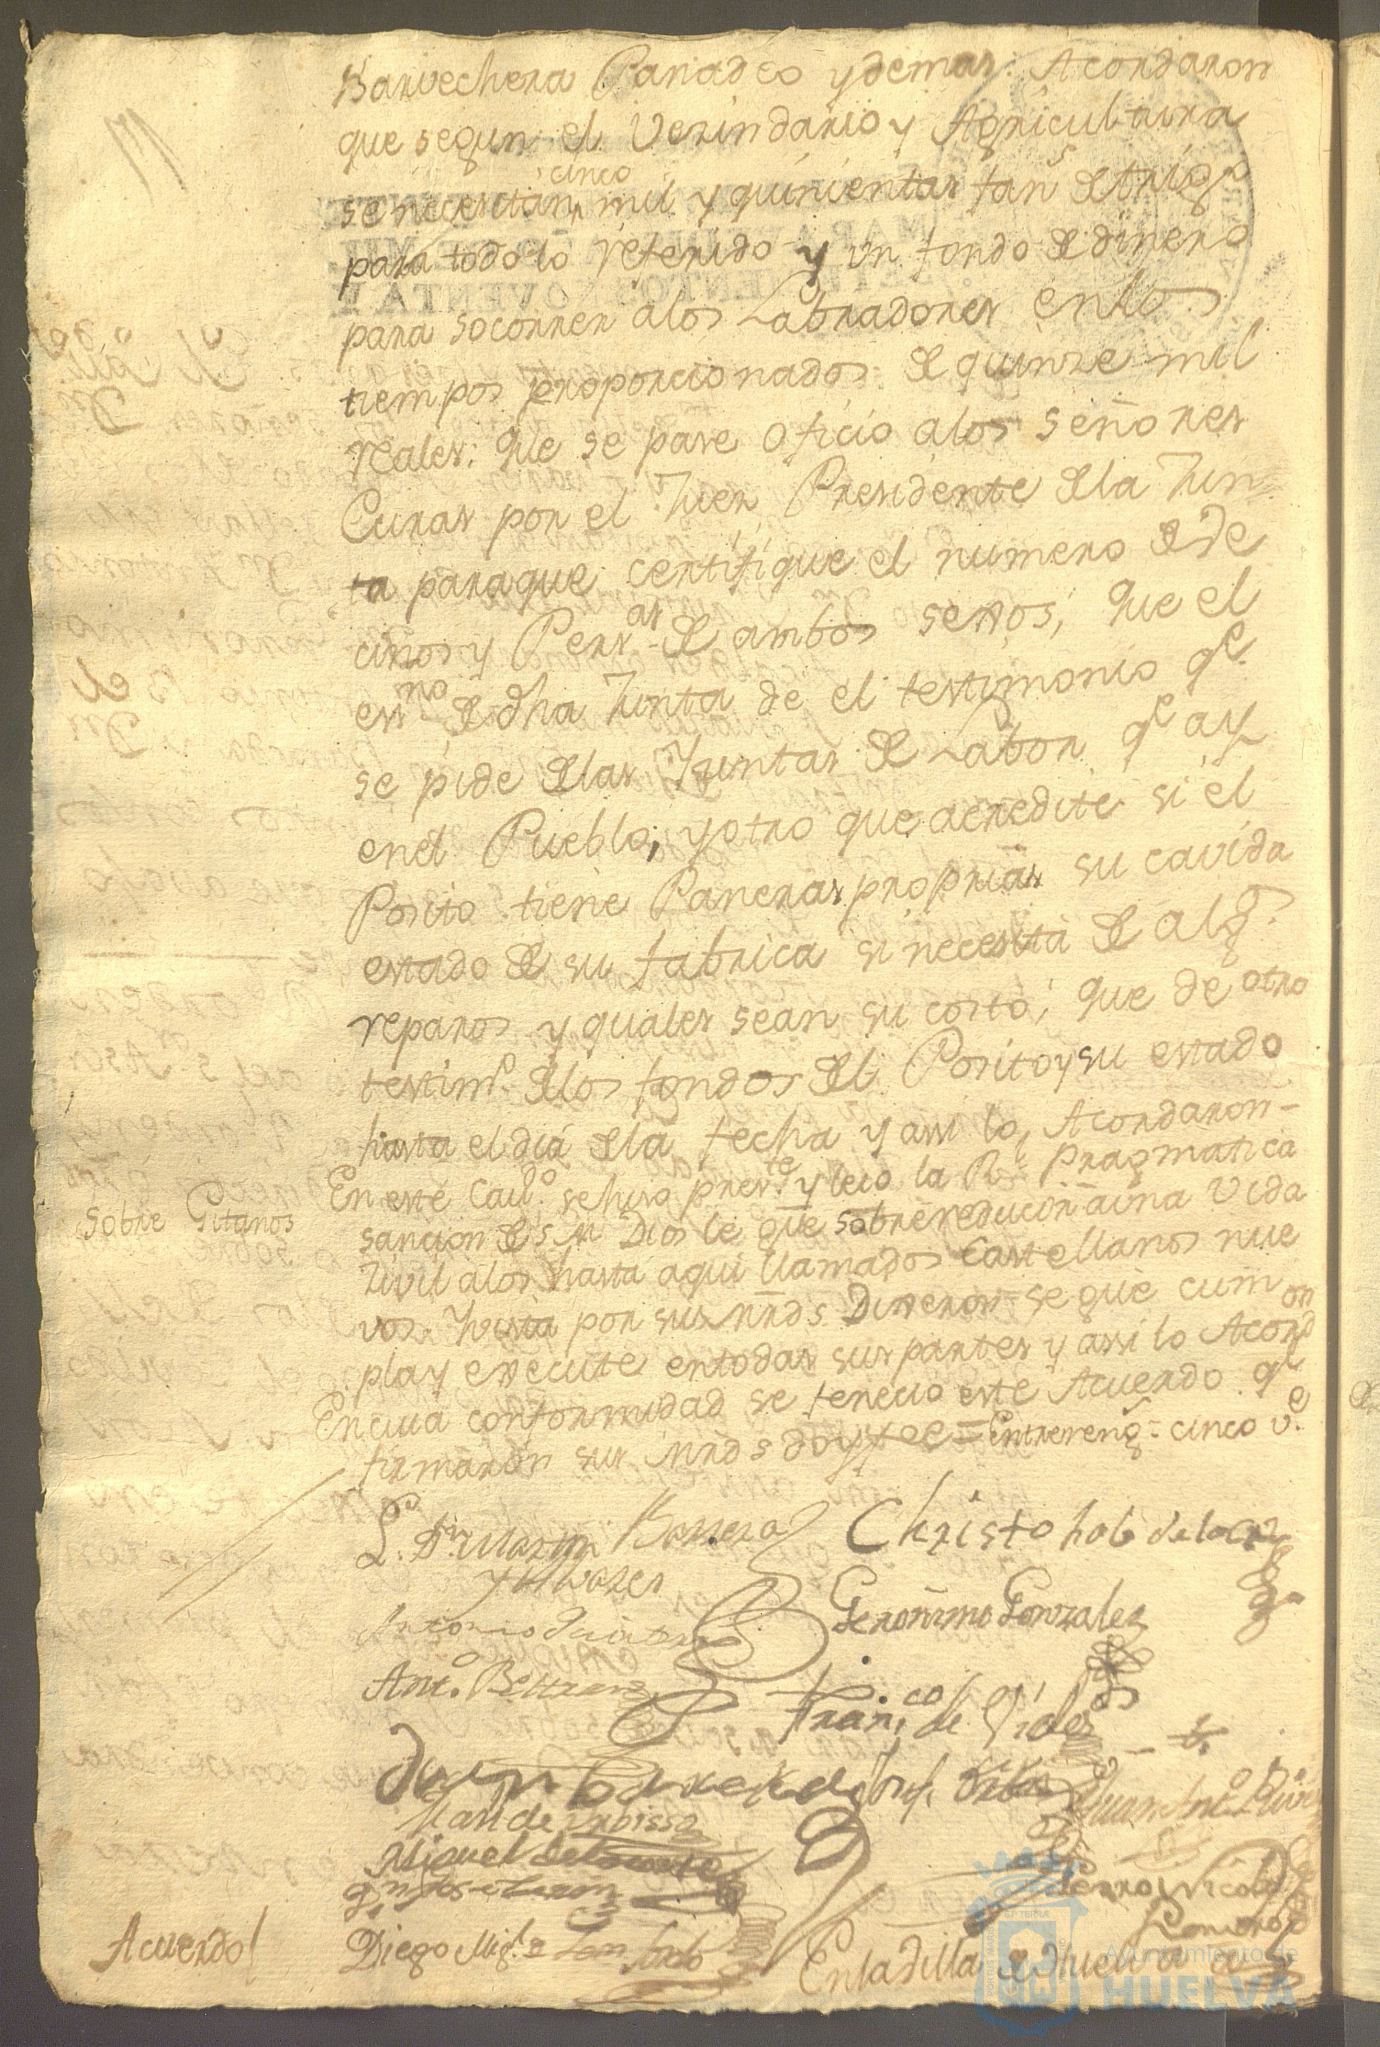 Barvechera Panadeo y demas: Acordaron
que segun el Vecindario y Agricultura
se necesitan cinco mil y quinientas fans. de trigo
para todo lo referido y un fondo de dinero
para socorrer alos Labradores enlos
tiempos proporcionados de quinze mil
reales: que se pase oficio alos señores
Curas por el Juez Presidente dela Jun
ta paraque certifique el numero de Ve
cinos y Persas. de ambos sexos; que el
essno. de dha Junta de el testimonio qe.
se pide delas Juntas de Labor qe ay
enel Pueblo; y otro que acredite si el
Posito tiene Paneras proprias su cavida
estado de su fabrica si necesita de algs.
reparos y quales sean su costo; que de otro
testimo. delos fondos del Posito y su estado
hasta el dia dela fecha y assi lo Acordaron
Sobre Gitanos
En este Cavdo. sehizo preste. y leio la Rl. Pragmatica
sancion de S. M. Dios le gue sobre reducion a una Vida
Zivil alos hasta aqui llamados Castellanos nue
vos. Y vista por sus mrds. Dixeron se gue cum
pla y execute entodas sus partes y assi lo Acordaron
En cuia conformidad se fenecio este Acuerdo qe
firmaron sus mrds doy fee = Entrereng.s - cinco ve.
L. Dn. Martin Barrera
y Alvarez
Christobal de la Cruz
Antonio Quintero
Geronimo Gonzalez
Anto. Beltran
Franco. de Vides
Juan
Juan Anto. Rive
Man de
Miguel dela corte
Pedro Nicolas
Romero
Diego Migl. de
Acuerdo
Enla Villa de Huelva a
Ayuntamiento de
HUELVA